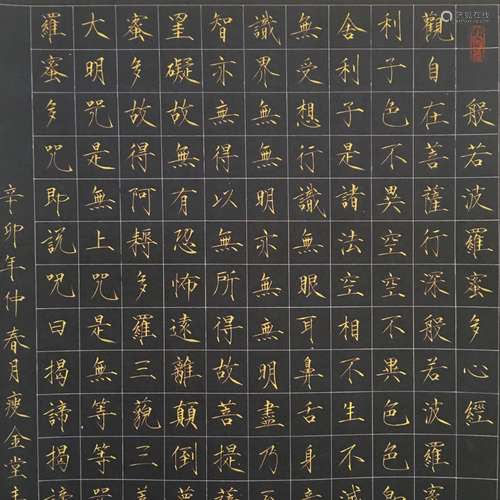 般若波羅蜜多心經
觀自在菩薩行深般若波羅
利子色不異空空不異色色
舍利子是諸法空相不生不
無受想行識無眼耳鼻舌身
識界無無明亦無無明盡乃
智亦無得以無所得故菩提
罣礙故無有恐怖遠離顛倒
蜜多故得阿耨多羅三藐三
大明咒是無上咒是無等等咒
羅蜜多咒即說咒曰揭諦揭諦
辛卯年仲春月瘦金堂